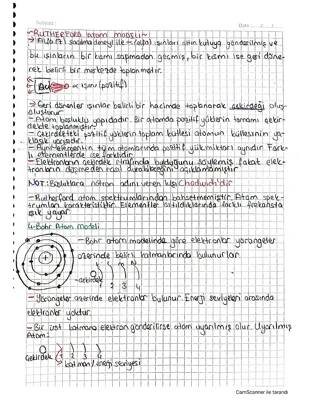 ~RUTHERFORD atom modeli~
→ Alfa (α) saçılma deneyi ile ~(alfa) ışınları altın kutuya gönderilmiş ve
bu ışınların bir kısmı sapmadan geçmiş, bir kısmı ise geri döne-
rek belirli bir merkezde toplanmıştır.
Au α ışını (pozitif)
→ Geri dönenler ışınlar belirli bir hacimde toplanarak çekirdeği oluş-
oluşturur.
- Atom boşluklu yapıdadır. Bir atomda pozitif yüklerin tamamı çekir-
dekte toplanmıştır.
- Çekirdekteki pozitif yüklerin toplam kütlesi atomun kütlesinin ya-
klaşık yarısıdır.
- Aynı elementin tüm atomlarında pozitif yük miktarı aynıdır. Fark-
lı elementlerde ise farklıdır.
- Elektronların çekirdek etrafında bulunduğunu söylemiş fakat elek-
tronların düşmeden nasıl durabildiğini açıklamamıştır.
NOT: Boşluklara nötron adını veren kişi Chadwick'dir
- Rutherford atom spektrumlarından bahsetmemiştir. Atom spek-
trumları karakteristiktir. Elementler ısıtıldıklarında farklı frekansta
ışık yayar.
4-Bohr Atom modeli
- Bohr atom modeline göre elektronlar yörüngeler
üzerinde belirli katmanlarında bulunurlar.
K L M N
-çekirdek 1 2 3 4
- Yörüngeler üzerinde elektronlar bulunur. Enerji seviyeleri arasında
elektronlar yoktur.
- Bir üst katmana elektron gönderilirse atom uyarılmış olur. Uyarılmış
Atom:
Çekirdek 1 2 3 4
katman/enerji seviyesi
CamScanner ile tarandı